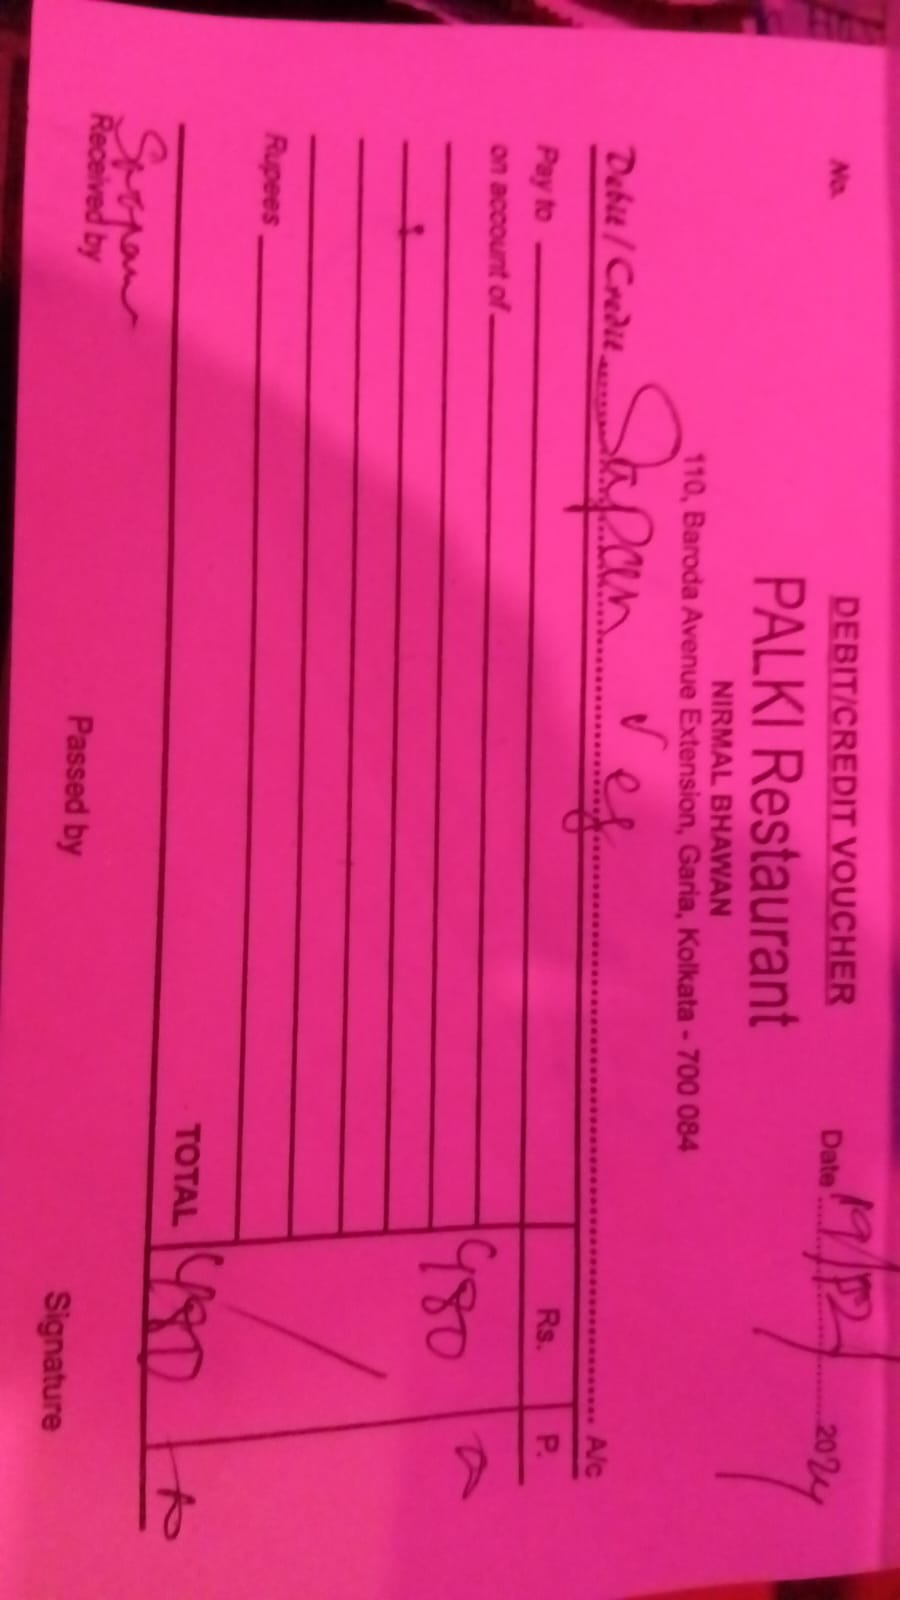 DEBIT/CREDIT VOUCHER
No. Date 19/12/2024
PALKI Restaurant
NIRMAL BHAWAN
110, Baroda Avenue Extension, Garia, Kolkata - 700 084
Debit / Credit Swpan Veg A/c
Pay to Rs. P.
on account of 480
Rupees
TOTAL 480
Received by Passed by Signature